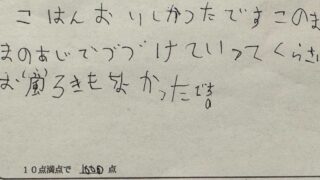 こはんおいしかったですこのま
まのあじでつづけていってくらさ
お風ろきもちよかったです。
10点満点で 1000 点